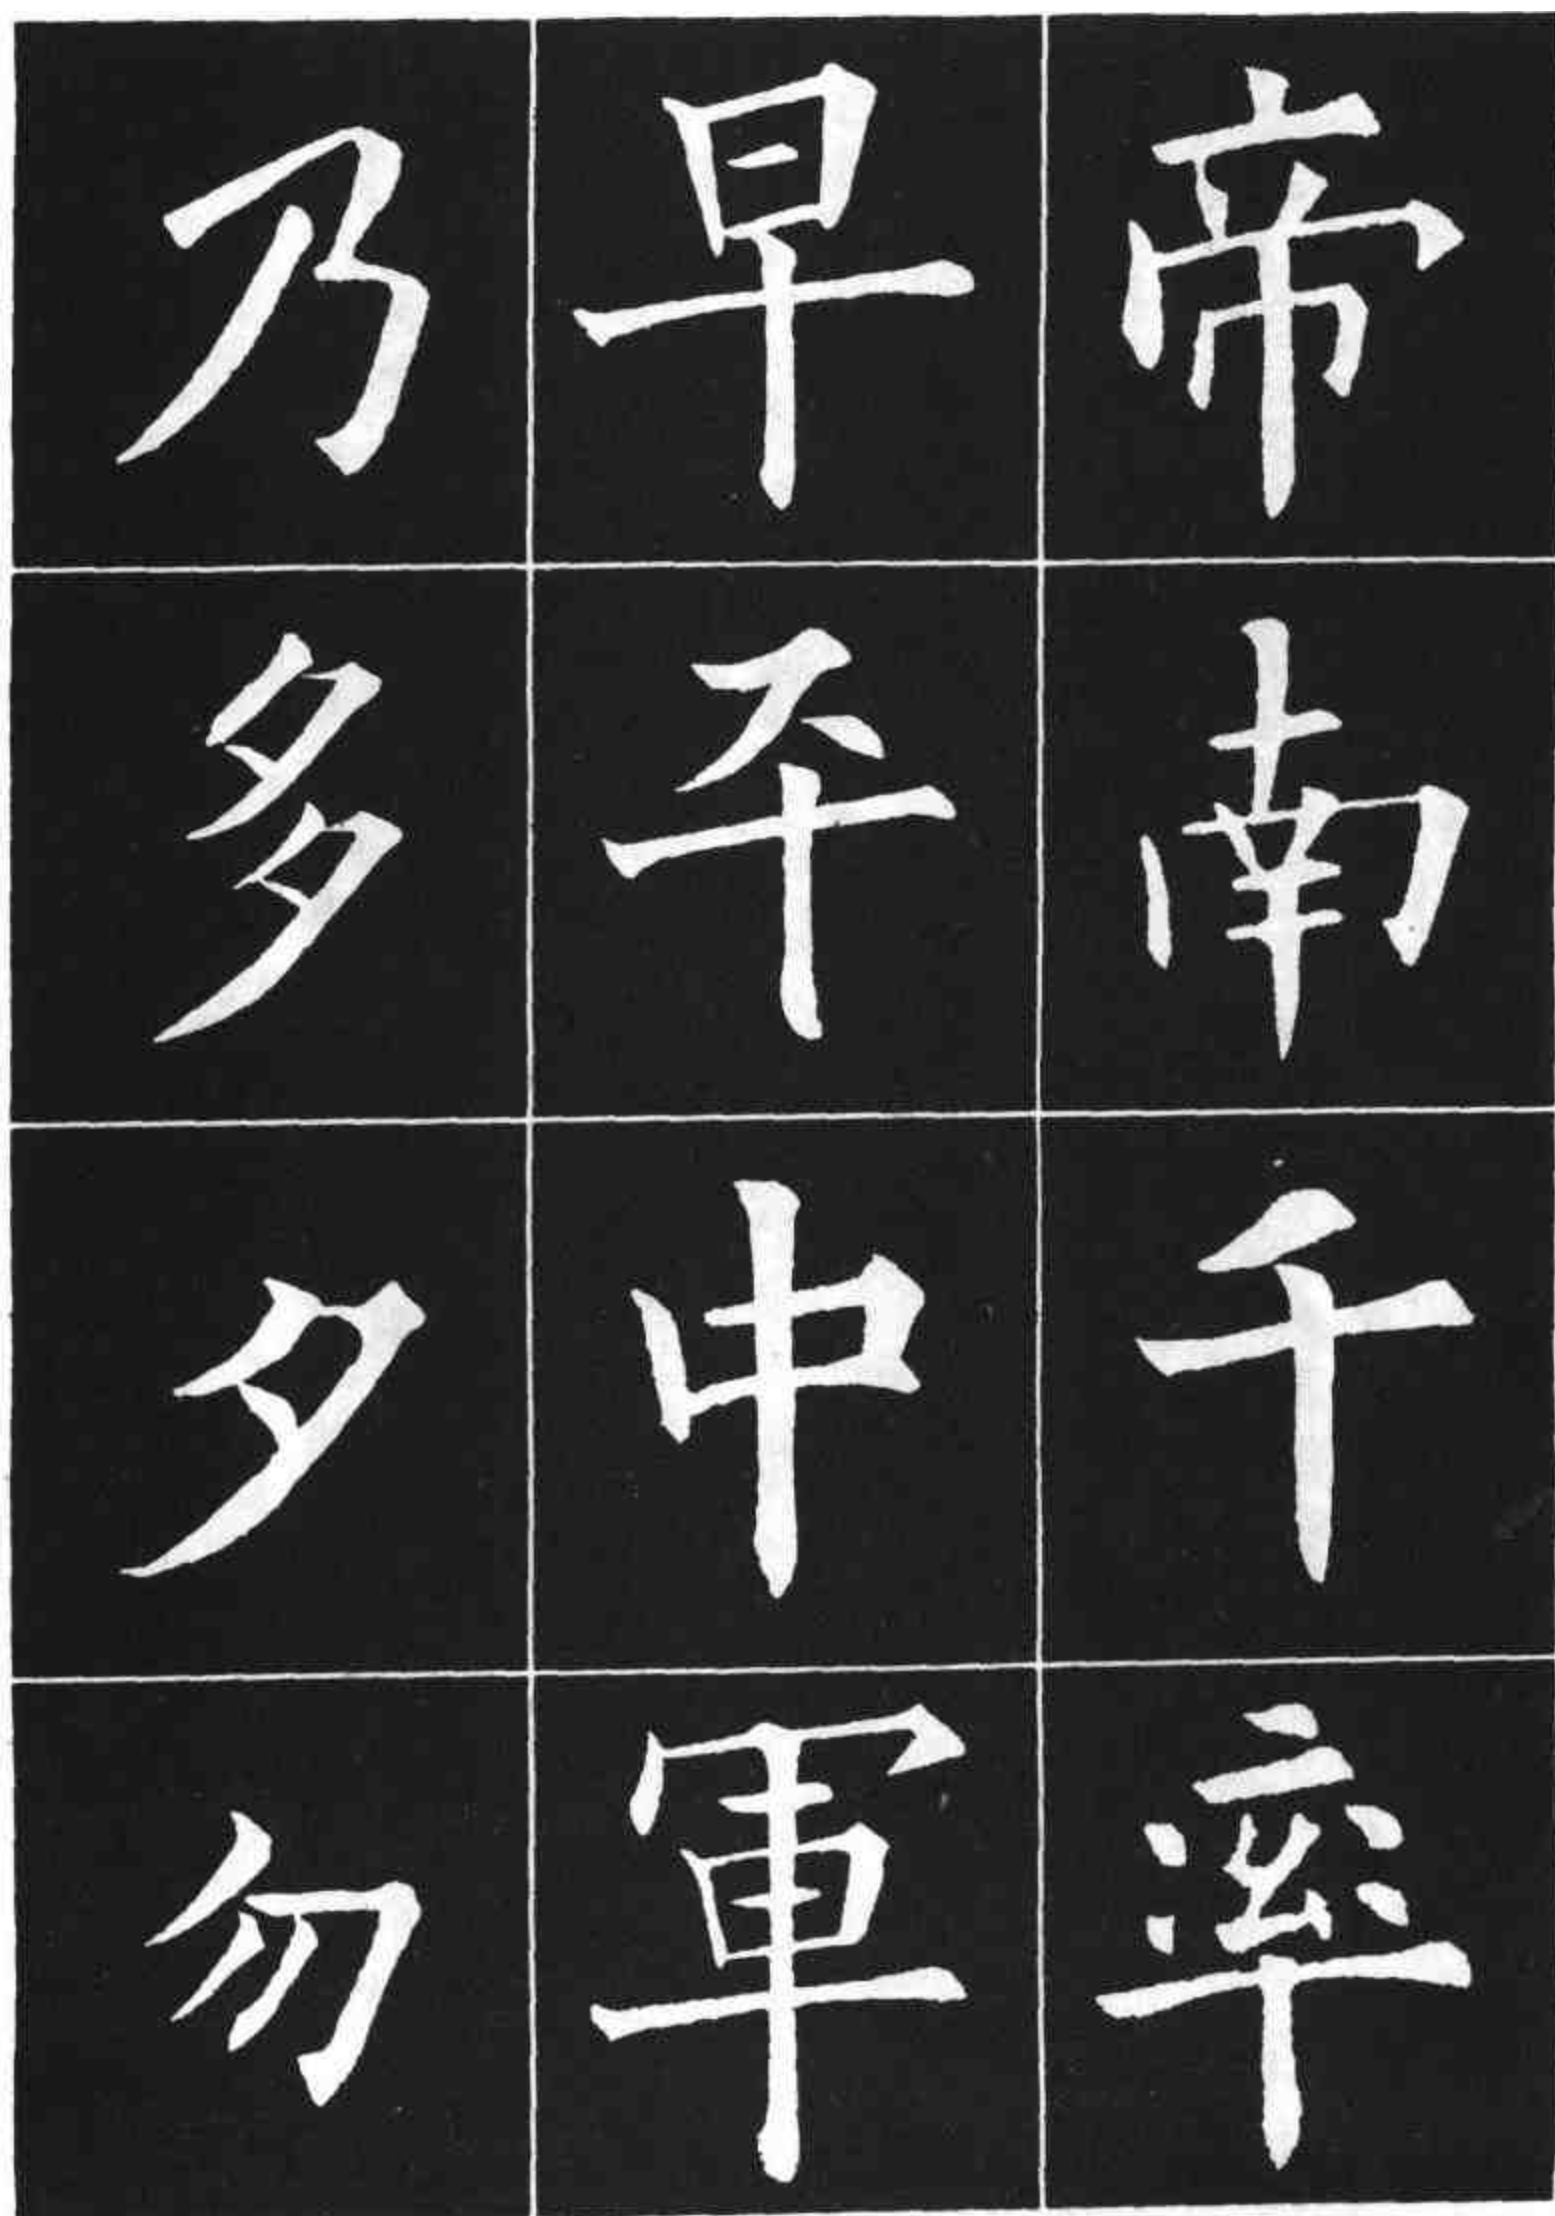 帝南千率
早平中軍
乃多夕勿